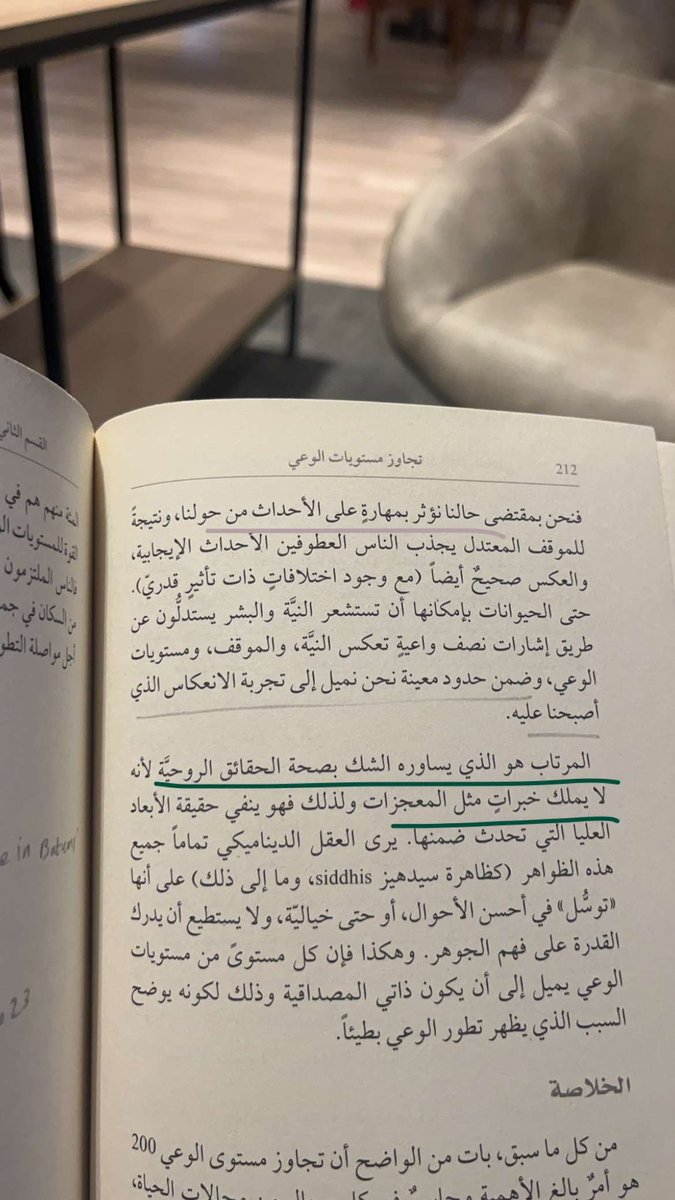 القسم الثاني
المئة منهم هم في
القوة للمستويات
فالناس الملتزمون
من السكان في
أجل مواصلة
in Batumi
23
212
تجاوز مستويات الوعي
فنحن بمقتضى حالنا نؤثر بمهارةٍ على الأحداث من حولنا، ونتيجةً
للموقف المعتدل يجذب الناس العطوفين الأحداث الإيجابية،
والعكس صحيحٌ أيضاً (مع وجود اختلافاتٍ ذات تأثيرٍ قدريّ).
حتى الحيوانات بإمكانها أن تستشعر النيَّة والبشر يستدلُّون عن
طريق إشارات نصف واعيةٍ تعكس النيَّة، والموقف، ومستويات
الوعي، وضمن حدود معينة نحن نميل إلى تجربة الانعكاس الذي
أصبحنا عليه.
المرتاب هو الذي يساوره الشك بصحة الحقائق الروحيَّة لأنه
لا يملك خبراتٍ مثل المعجزات ولذلك فهو ينفي حقيقة الأبعاد
العليا التي تحدث ضمنها. يرى العقل الديناميكي تماماً جميع
هذه الظواهر (كظاهرة سيدهيز siddhis، وما إلى ذلك) على أنها
«توسُّل» في أحسن الأحوال، أو حتى خياليّة، ولا يستطيع أن يدرك
القدرة على فهم الجوهر. وهكذا فإن كل مستوىً من مستويات
الوعي يميل إلى أن يكون ذاتي المصداقية وذلك لكونه يوضح
السبب الذي يظهر تطور الوعي بطيئاً.
الخلاصة
من كل ما سبق، بات من الواضح أن تجاوز مستوى الوعي 200
هو أمرٌ بالغ الأهمية
الحياة،